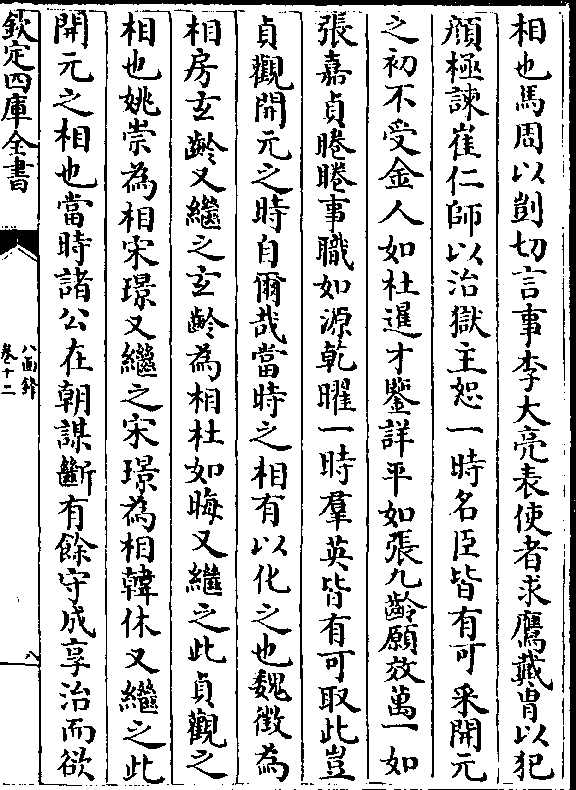 相也馬周以剴切言事李大亮表使者求鷹戴胄以犯
顔極諫崔仁師以治獄主恕一時名臣皆有可采開元
之初不受金人如杜暹才鑒詳平如張九齡願效萬一如
張嘉貞睠睠事職如源乾曜一時羣英皆有可取此豈
貞觀開元之時自爾哉當時之相有以化之也魏徴為
相房玄齡又繼之玄齡為相杜如晦又繼之此貞觀之
相也姚崇為相宋璟又繼之宋璟為相韓休又繼之此
開元之相也當時諸公在朝謀斷有餘守成享治而欲
欽定四庫全書
八面鋒
卷十二
八